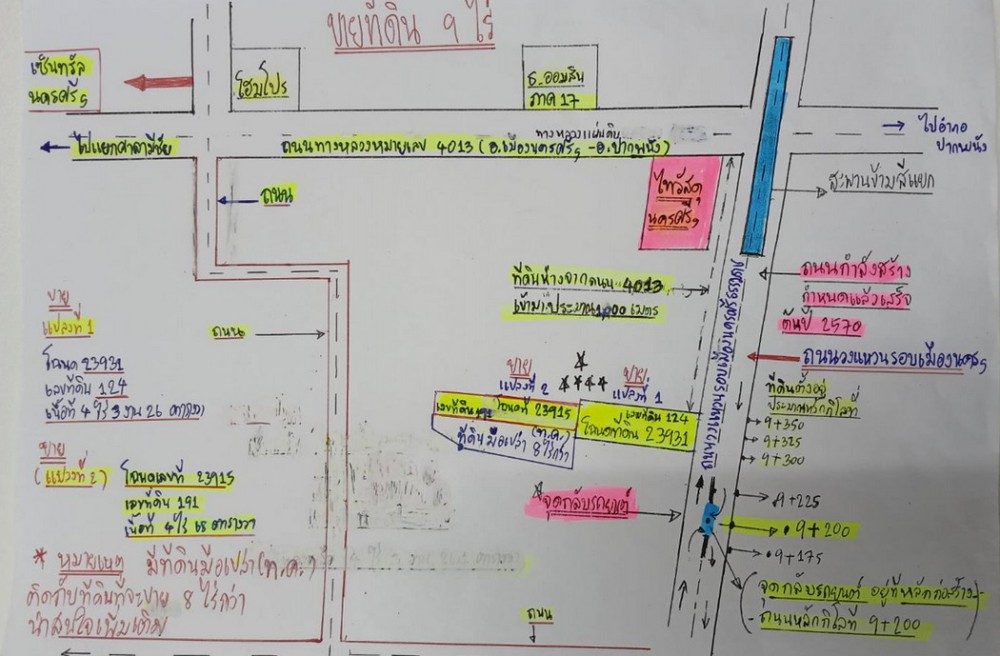 ขายที่ดิน 9 ไร่
เซ็นทรัล
นครศรีฯ
โฮมโปร
ธ.ออมสิน
ภาค 17
ทางหลวงแผ่นดิน
ไปแยกศาลามีชัย
ถนนทางหลวงหมายเลข 4013 (อ.เมืองนครศรีฯ - อ.ปากพนัง)
ไปอำเภอ
ปากพนัง
สะพานข้ามสี่แยก
ไทวัสดุ
นครศรีฯ
ถนน
ที่ดินห่างจากถนน 4013
เข้ามาประมาณ 1,000 เมตร
ถนนกำลังสร้าง
กำหนดแล้วเสร็จ
ต้นปี 2570
ถนนวงแหวนรอบเมืองนครศรีธรรมราช
ถนนวงแหวนรอบเมืองนครฯ
ถนน
ขาย
แปลงที่ 1
โฉนด 23931
เลขที่ดิน 124
เนื้อที่ 4 ไร่ 3 งาน 26 ตารางวา
ขาย
แปลงที่ 2
ขาย
แปลงที่ 1
เลขที่ดิน 191
โฉนดที่ 23915
เลขที่ดิน 124
โฉนดที่ดิน 23931
(ท.ค.)
ที่ดินมือเปล่า 8 ไร่กว่า
ที่ดินตั้งอยู่
ประมาณหลักกิโลที่
9+350
9+325
9+300
9+225
9+200
9+175
จุดกลับรถยนต์
ขาย
(แปลงที่ 2)
โฉนดเลขที่ 23915
เลขที่ดิน 191
เนื้อที่ 4 ไร่ 68 ตารางวา
* หมายเหตุ มีที่ดินมือเปล่า (ท.ค.)
ติดกับที่ดินที่จะขาย 8 ไร่กว่า
น่าสนใจเพิ่มเติม
(จุดกลับรถยนต์ อยู่ที่หลักก่อสร้าง
- ถนนหลักกิโลที่ 9+200)
ถนน